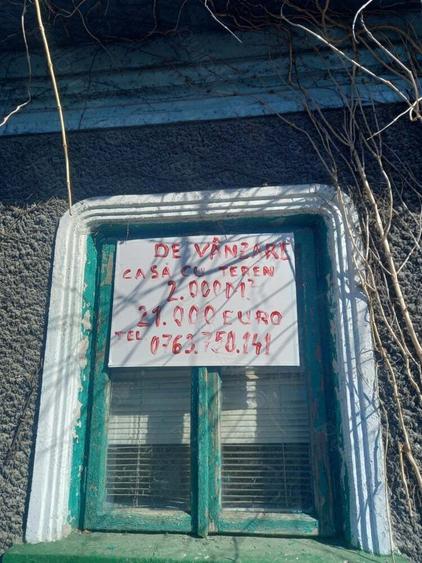 DE VÂNZARE
CASA CU TEREN
2.000M²
21.000 EURO
TEL 0763.750.141